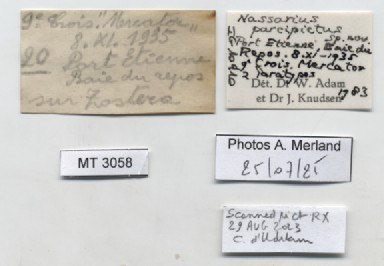 9e Crois. "Mercator"
8. XI. 1935
20 Port Etienne
Baie du repos
sur Zostera
Nassarius
parcipictus
sp. nov.
Port Etienne, Baie du
Repos. 8.XI-1935
9e Crois. Mercator
2 paratypes
Dét. Dr. W. Adam
et Dr J. Knudsen
1983
MT 3058
Photos A. Merland
25/07/25
Scanned pict RX
29 AUG 2023